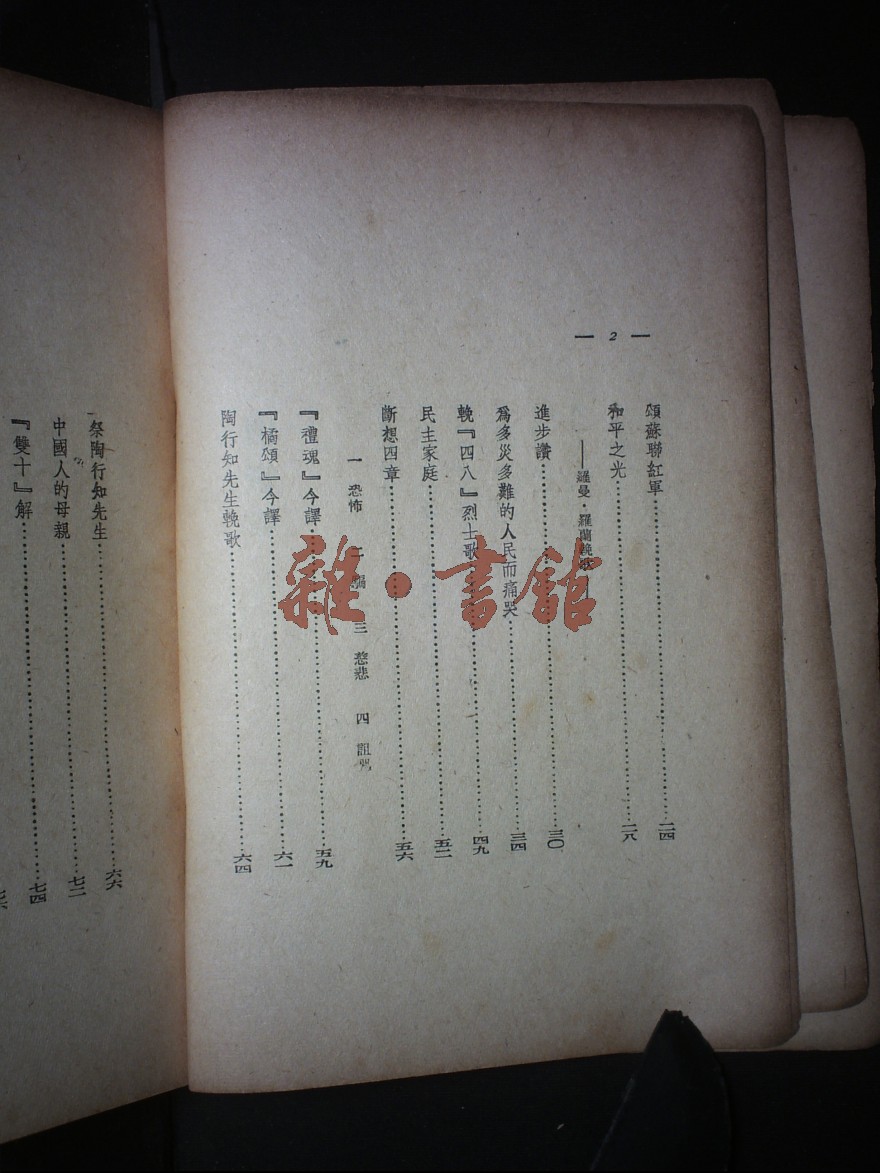 — 2 —
頌蘇聯紅軍……二四
和平之光……二八
——羅曼・羅蘭輓歌——
進步讚……三〇
爲多災多難的人民而痛哭……三四
輓『四八』烈士歌……四九
民主家庭……五二
斷想四章……五六
一 恐怖 二 三 慈悲 四 詛咒
『禮魂』今譯……五九
『橘頌』今譯……六一
陶行知先生輓歌……六四
祭陶行知先生……六六
中國人的母親……七二
『雙十』解……七四
雜・書館